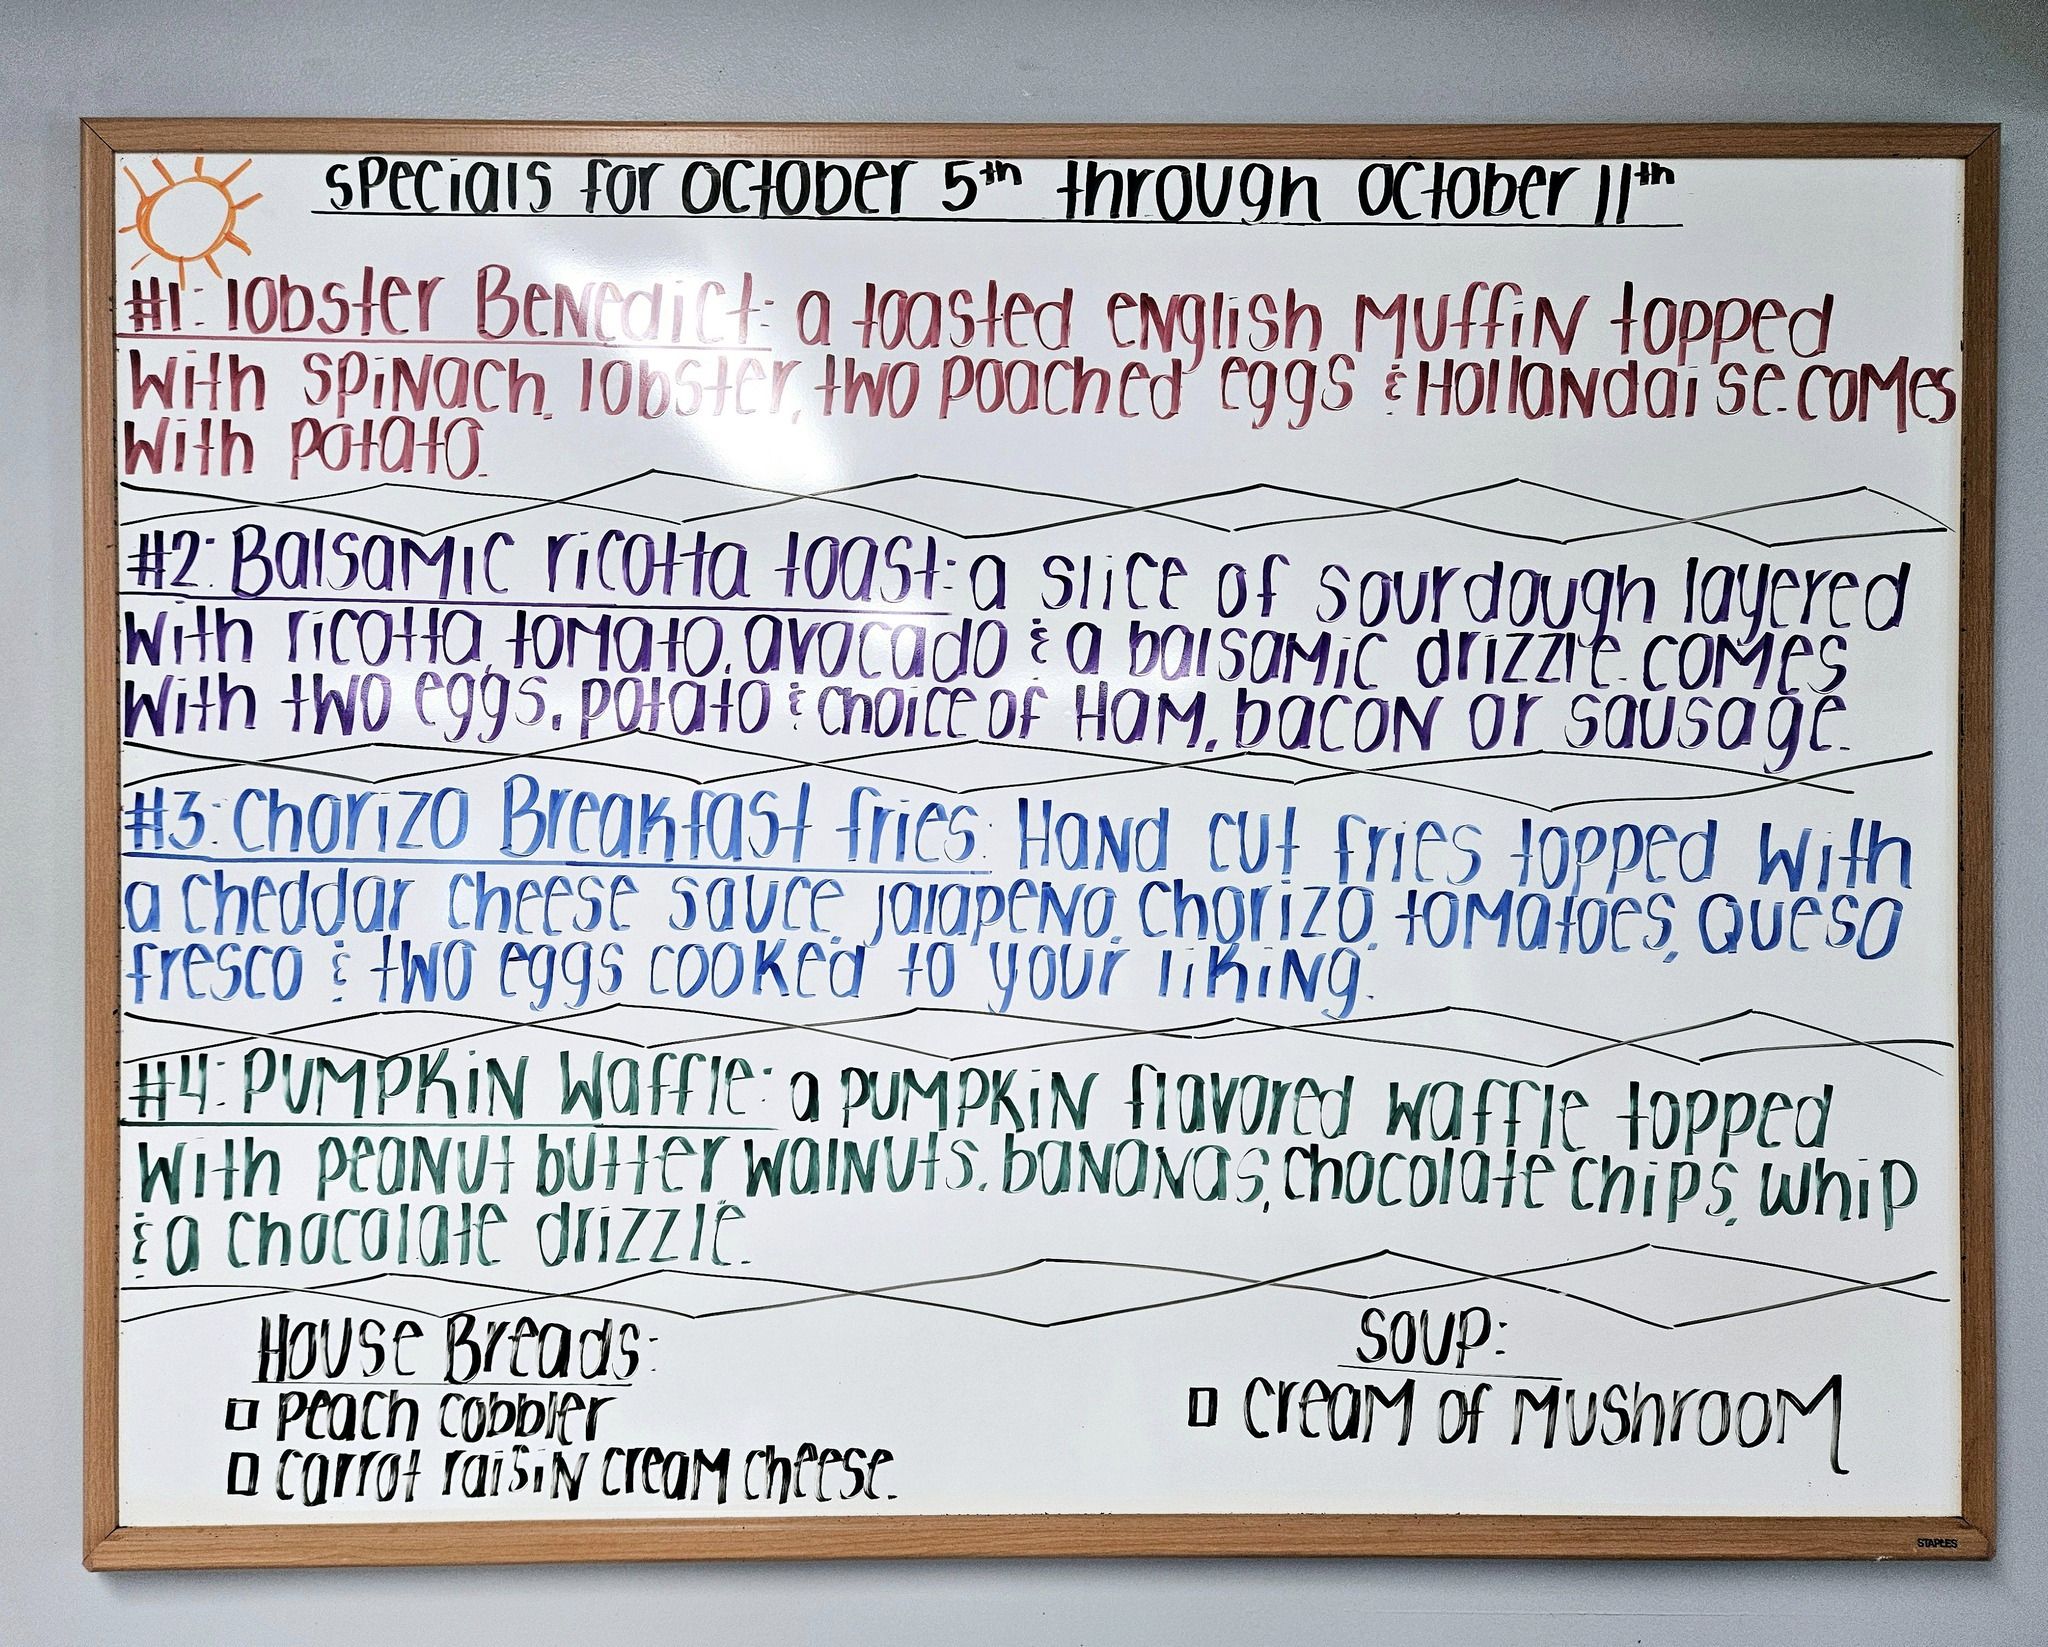 Specials for October 5th through October 11th
#1: lobster Benedict: a toasted english muffin topped
with spinach, lobster, two poached eggs & Hollandaise. comes
with potato.
#2: Balsamic ricotta toast: a slice of sourdough layered
with ricotta, tomato, avocado & a balsamic drizzle. comes
with two eggs, potato & choice of Ham, bacon or sausage.
#3: Chorizo Breakfast fries: Hand cut fries topped with
a cheddar cheese sauce, jalapeno, chorizo, tomatoes, queso
fresco & two eggs cooked to your liking.
#4: Pumpkin Waffle: a pumpkin flavored waffle topped
with peanut butter, walnuts, bananas, chocolate chips, whip
& a chocolate drizzle.
House Breads:
peach cobbler
carrot raisin cream cheese.
Soup:
Cream of Mushroom
STAPLES